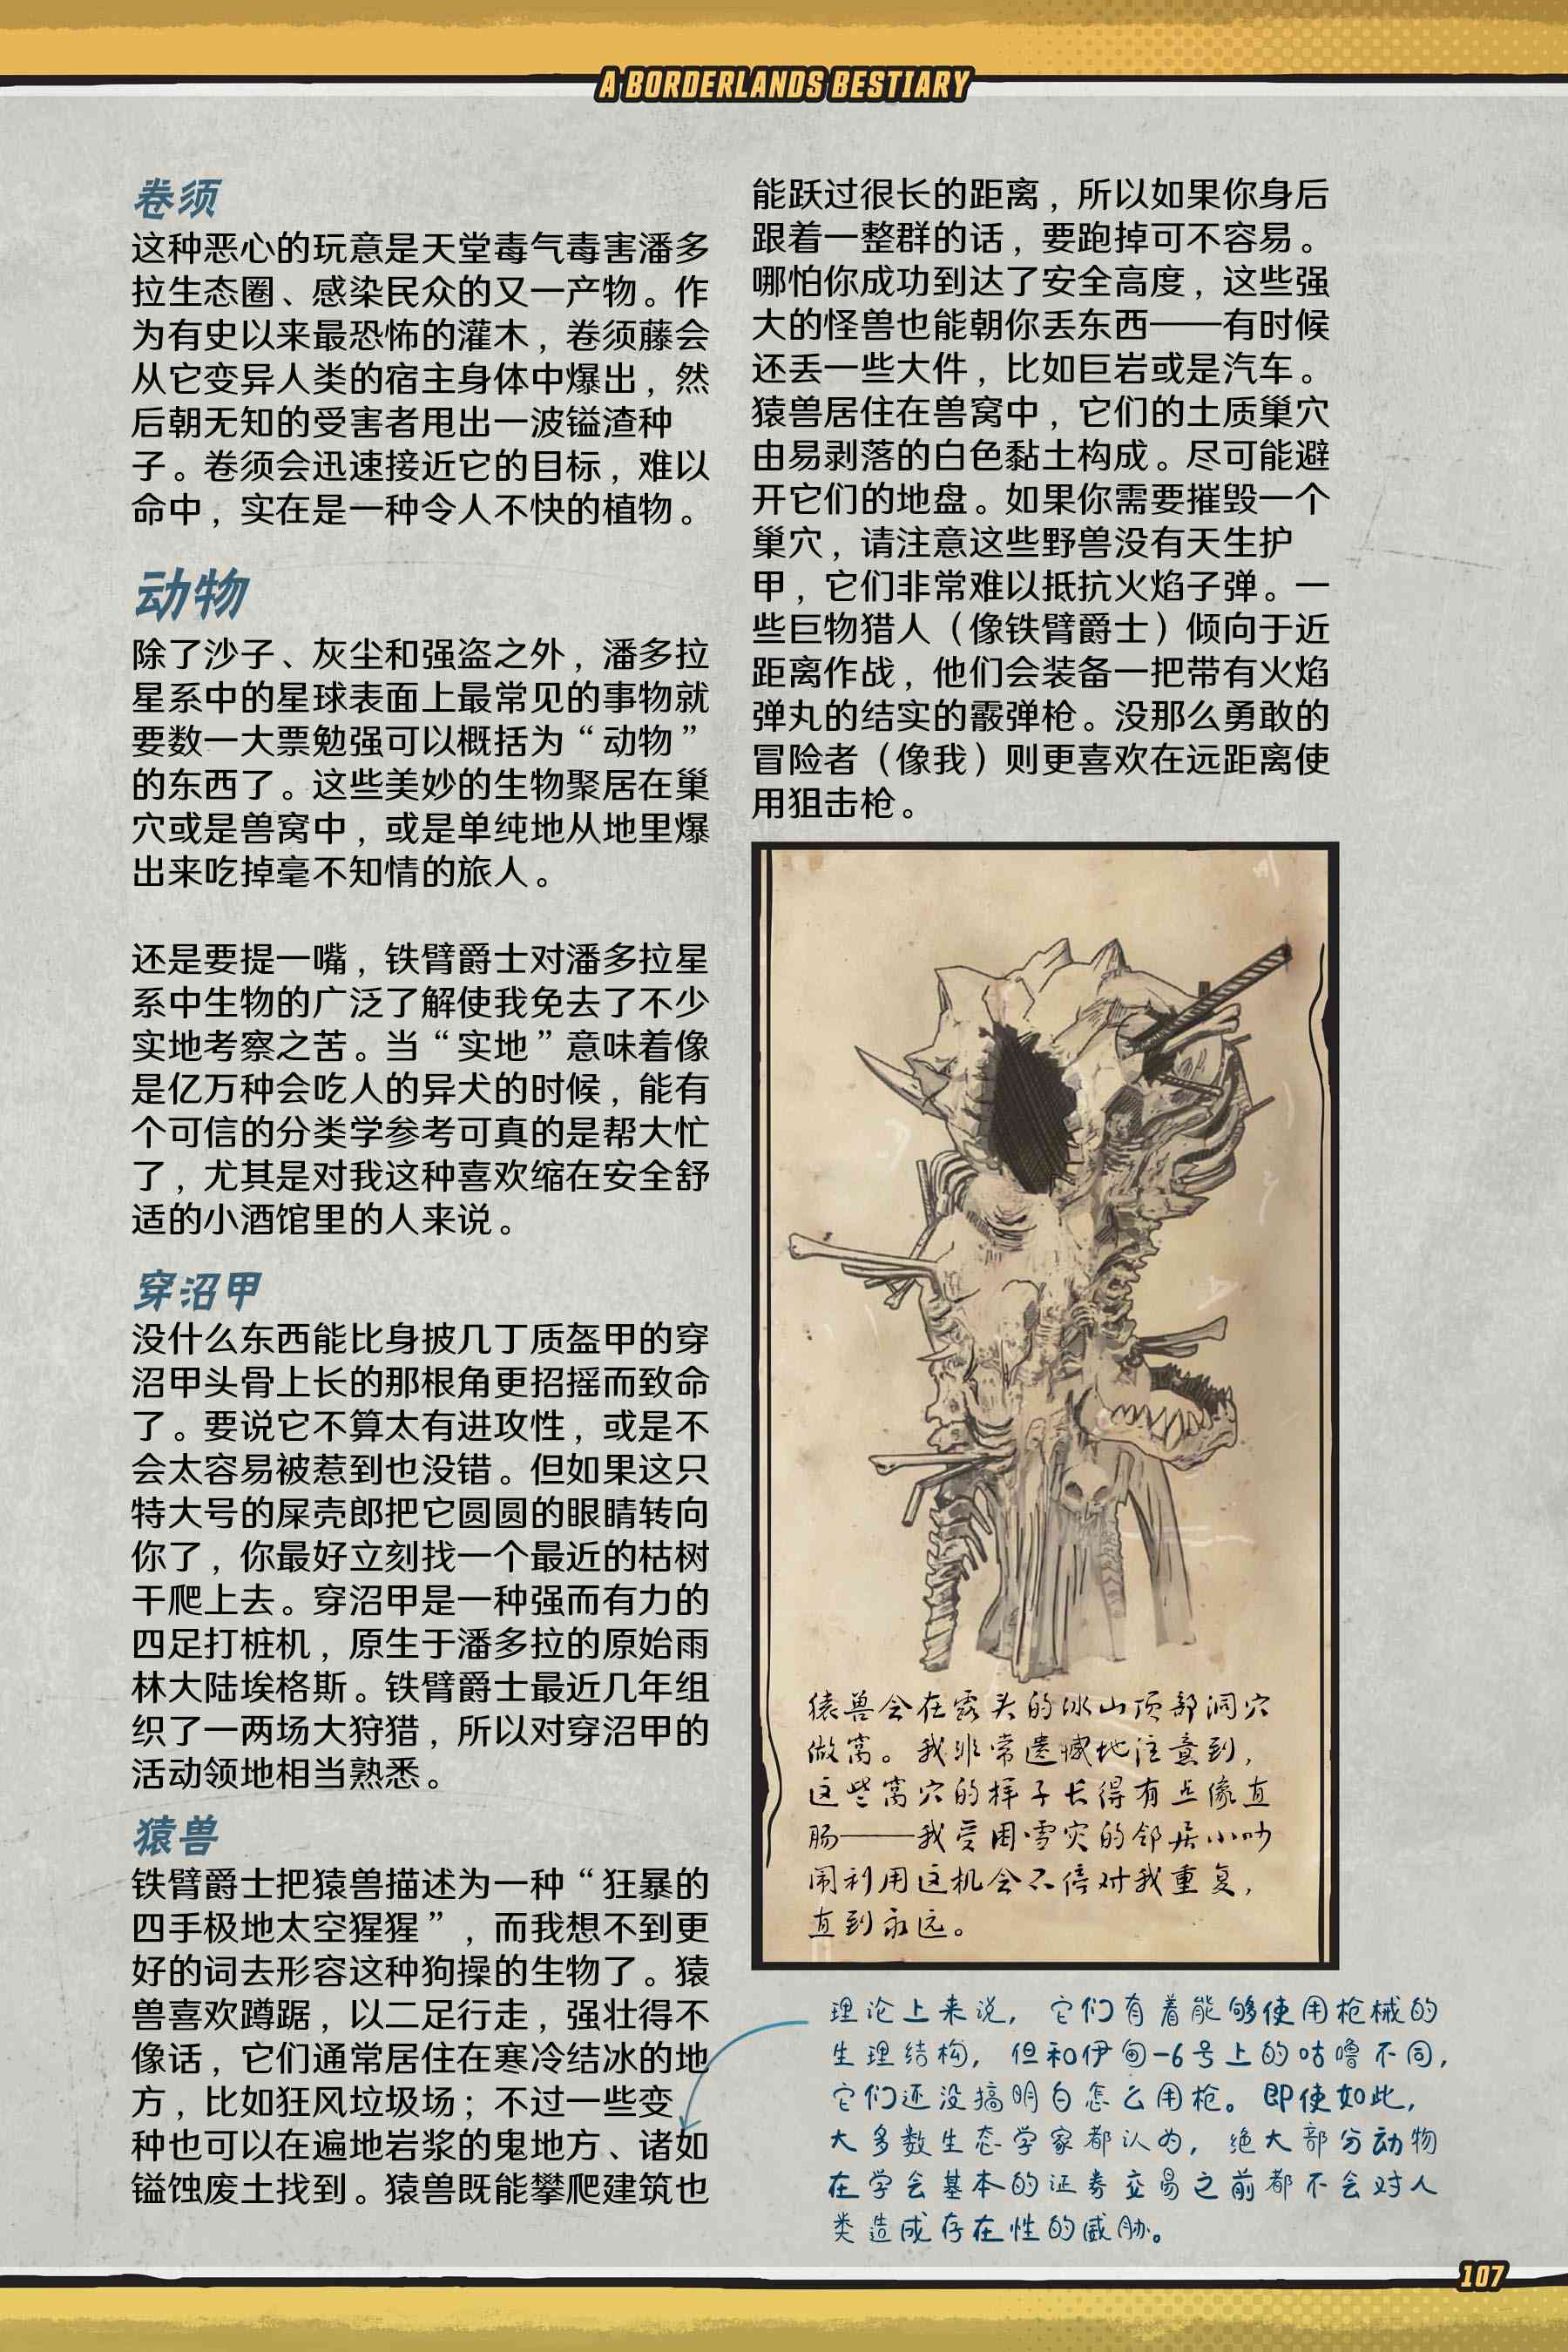 A BORDERLANDS BESTIARY
卷须
这种恶心的玩意是天堂毒气毒害潘多
拉生态圈、感染民众的又一产物。作
为有史以来最恐怖的灌木，卷须藤会
从它变异人类的宿主身体中爆出，然
后朝无知的受害者甩出一波镒渣种
子。卷须会迅速接近它的目标，难以
命中，实在是一种令人不快的植物。
动物
除了沙子、灰尘和强盗之外，潘多拉
星系中的星球表面上最常见的事物就
要数一大票勉强可以概括为“动物”
的东西了。这些美妙的生物聚居在巢
穴或是兽窝中，或是单纯地从地里爆
出来吃掉毫不知情的旅人。
还是要提一嘴，铁臂爵士对潘多拉星
系中生物的广泛了解使我免去了不少
实地考察之苦。当“实地”意味着像
是亿万种会吃人的异犬的时候，能有
个可信的分类学参考可真的是帮大忙
了，尤其是对我这种喜欢缩在安全舒
适的小酒馆里的人来说。
穿沼甲
没什么东西能比身披几丁质盔甲的穿
沼甲头骨上长的那根角更招摇而致命
了。要说它不算太有进攻性，或是不
会太容易被惹到也没错。但如果这只
特大号的屎壳郎把它圆圆的眼睛转向
你了，你最好立刻找一个最近的枯树
干爬上去。穿沼甲是一种强而有力的
四足打桩机，原生于潘多拉的原始雨
林大陆埃格斯。铁臂爵士最近几年组
织了一两场大狩猎，所以对穿沼甲的
活动领地相当熟悉。
猿兽
铁臂爵士把猿兽描述为一种“狂暴的
四手极地太空猩猩”，而我想不到更
好的词去形容这种狗操的生物了。猿
兽喜欢蹲踞，以二足行走，强壮得不
像话，它们通常居住在寒冷结冰的地
方，比如狂风垃圾场；不过一些变
种也可以在遍地岩浆的鬼地方、诸如
镒蚀废土找到。猿兽既能攀爬建筑也
能跃过很长的距离，所以如果你身后
跟着一整群的话，要跑掉可不容易。
哪怕你成功到达了安全高度，这些强
大的怪兽也能朝你丢东西——有时候
还丢一些大件，比如巨岩或是汽车。
猿兽居住在兽窝中，它们的土质巢穴
由易剥落的白色黏土构成。尽可能避
开它们的地盘。如果你需要摧毁一个
巢穴，请注意这些野兽没有天生护
甲，它们非常难以抵抗火焰子弹。一
些巨物猎人（像铁臂爵士）倾向于近
距离作战，他们会装备一把带有火焰
弹丸的结实的霰弹枪。没那么勇敢的
冒险者（像我）则更喜欢在远距离使
用狙击枪。
猿兽会在露头的冰山顶部洞穴
做窝。我非常遗憾地注意到，
这些窝穴的样子长得有点像直
肠——我受困雪灾的邻居小吵
闹利用这机会不停对我重复，
直到永远。
理论上来说，它们有着能够使用枪械的
生理结构，但和伊甸-6号上的咕噜不同，
它们还没搞明白怎么用枪。即使如此，
大多数生态学家都认为，绝大部分动物
在学会基本的证券交易之前都不会对人
类造成存在性的威胁。
107